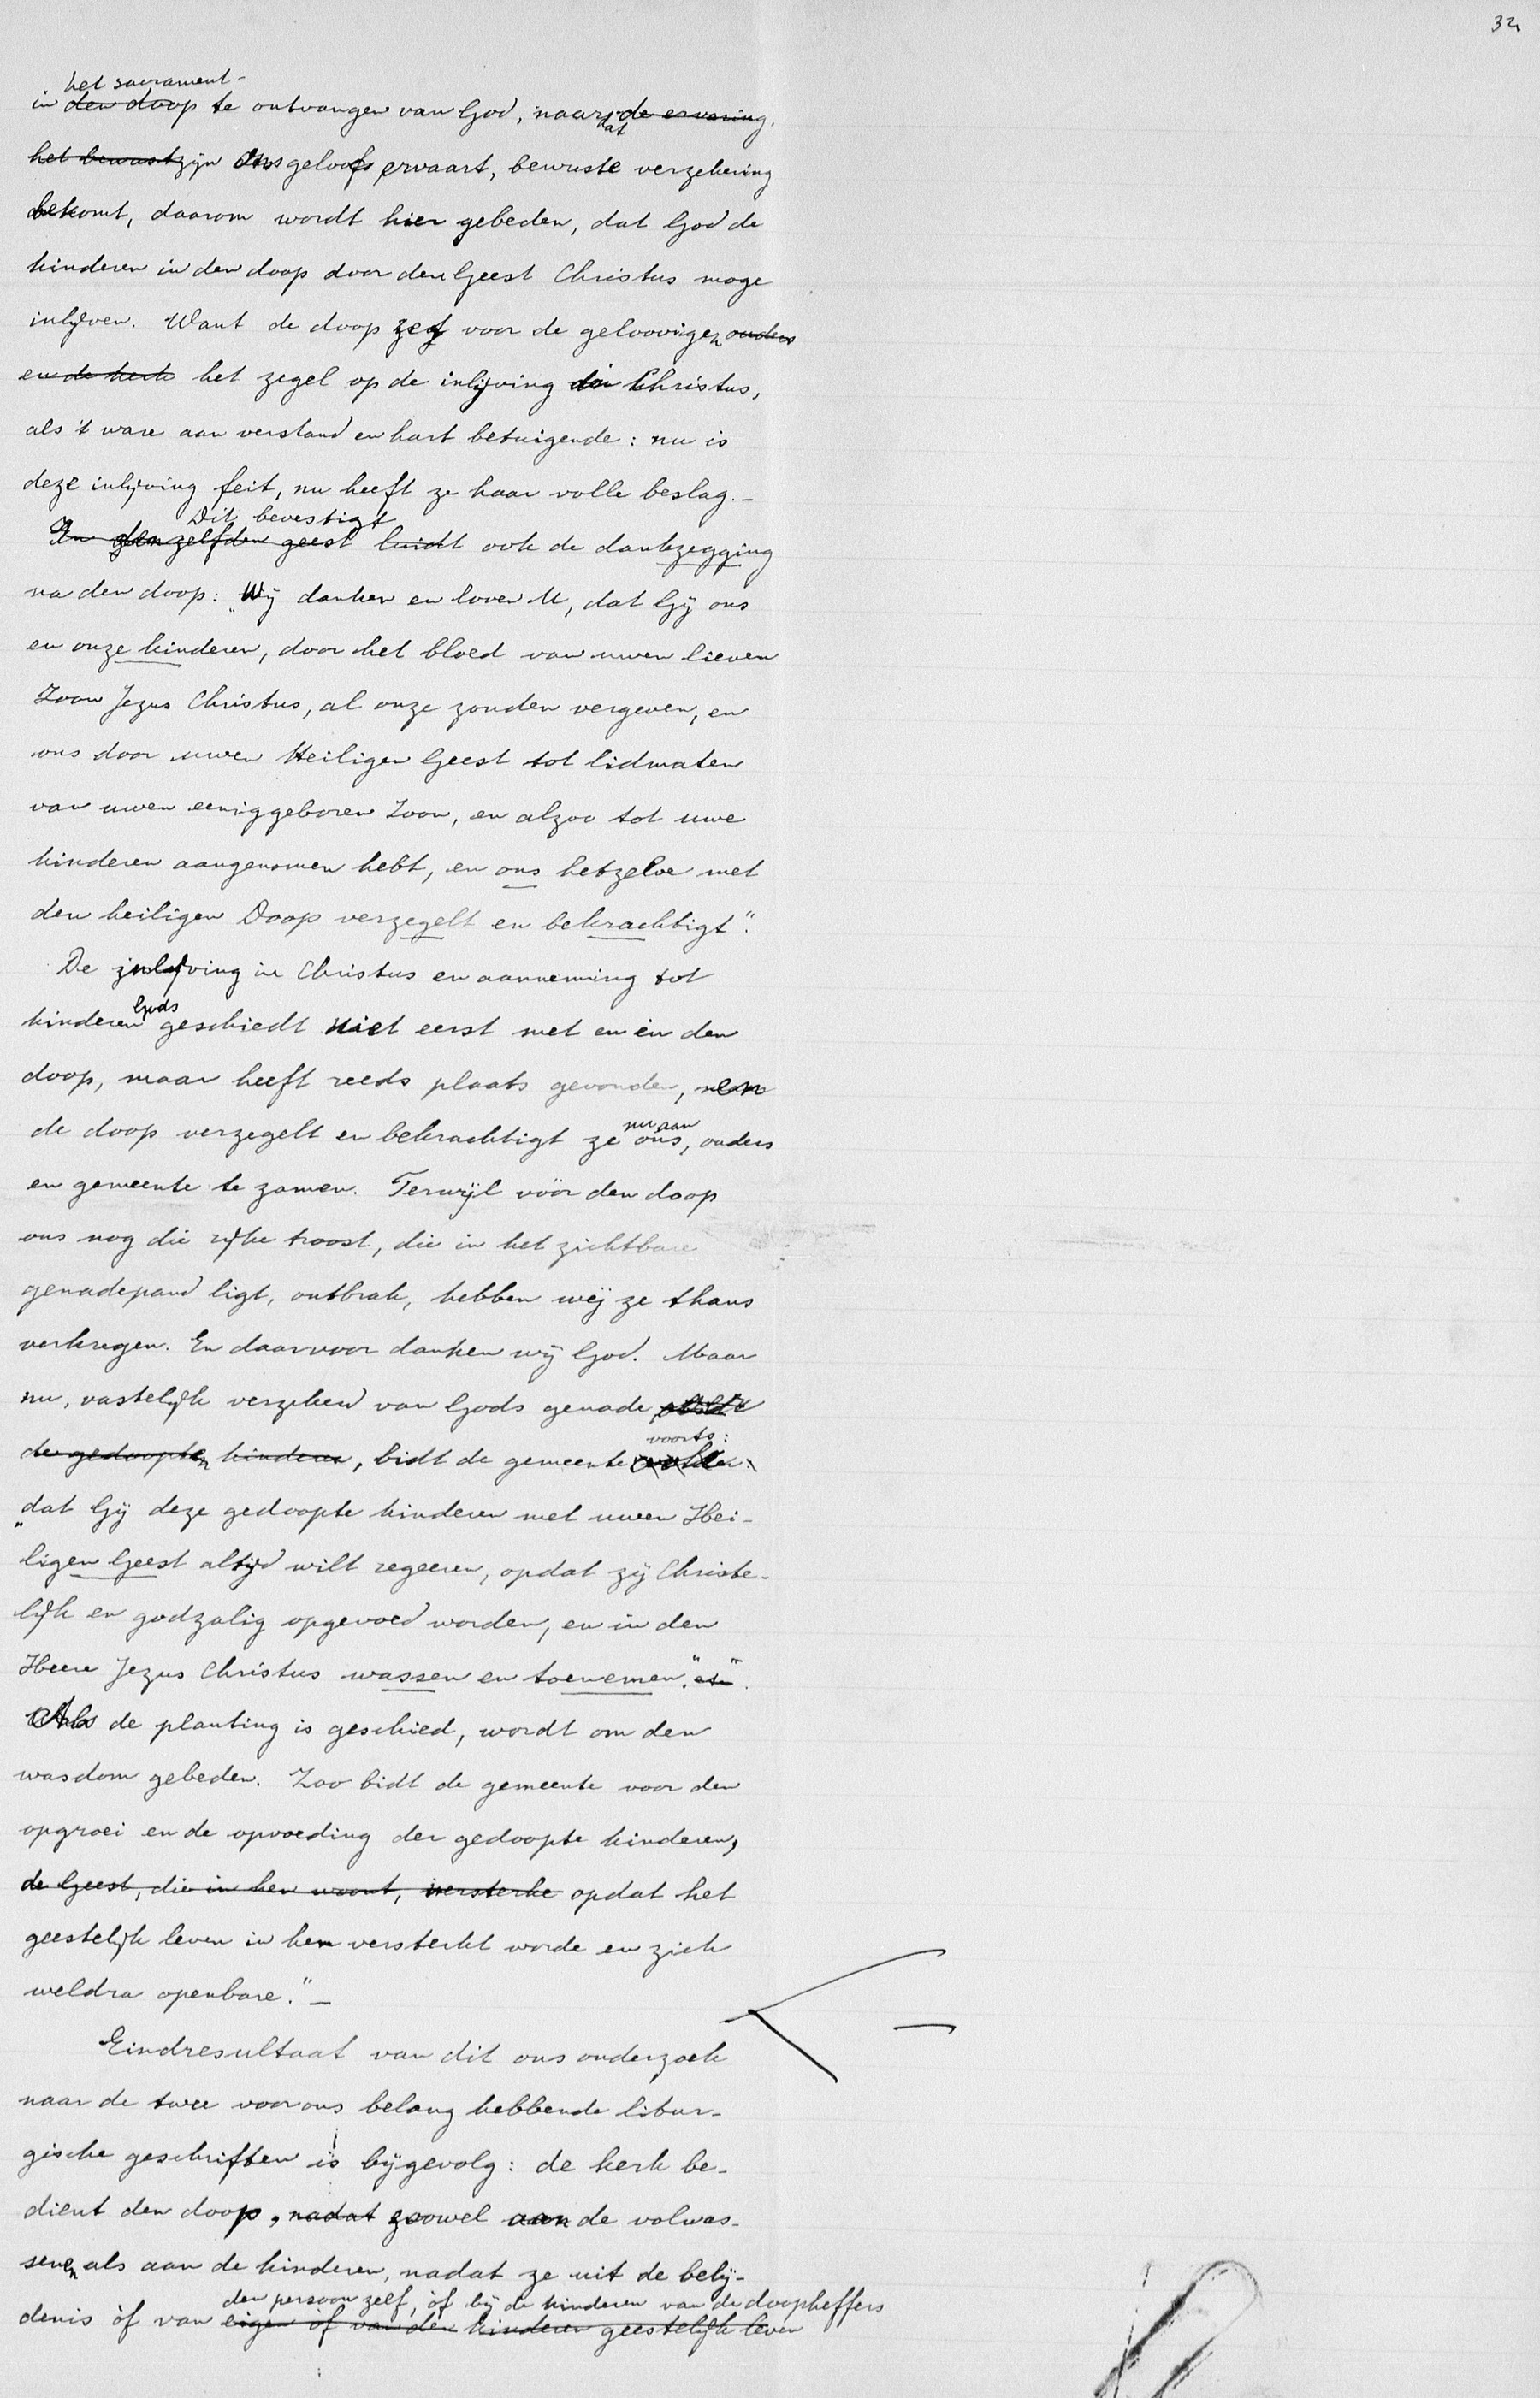 32
het sacrament-
in den doop te ontvangen van God, naar de ervaring,
dat
het bewustzijn ons geloofs ervaart, bewuste verzekering
bekomt, daarom wordt hier gebeden, dat God de
kinderen in den doop door den Geest Christus moge
inlijven. Want de doop zegt voor de geloovigen ouders
en de kerk het zegel op de inlijving in Christus,
als 't ware aan verstand en hart betuigende: nu is
deze inlijving feit, nu heeft ze haar volle beslag.-
Dit bevestigt
In denzelfden geest luidt ook de dankzegging
na den doop: „Wij danken en loven U, dat Gij ons
en onze kinderen, door het bloed van uwen lieven
Zoon Jezus Christus, al onze zonden vergeven, en
ons door uwen Heiligen Geest tot lidmaten
van uwen eeniggeboren Zoon, en alzoo tot uwe
kinderen aangenomen hebt, en ons hetzelve met
den heiligen Doop verzegelt en bekrachtigt".
De inlijving in Christus en aanneming tot
kinderen Gods geschiedt niet eerst met en in den
doop, maar heeft reeds plaats gevonden, en
de doop verzegelt en bekrachtigt ze nu aan ons, ouders
en gemeente te zamen. Terwijl vóór den doop
ons nog die rijke troost, die in het zichtbare
genadepand ligt, ontbrak, hebben wij ze thans
verkregen. En daarvoor danken wij God. Maar
nu, vastelijk verzekerd van Gods genade
voorts:
de gedoopten kinderen, bidt de gemeente
„dat Gij deze gedoopte kinderen met uwen Hei-
ligen Geest altijd wilt regeeren, opdat zij Christe-
lijk en godzalig opgevoed worden, en in den
Heere Jezus Christus wassen en toenemen," etc".
Als de planting is geschied, wordt om den
wasdom gebeden. Zoo bidt de gemeente voor den
opgroei en de opvoeding der gedoopte kinderen,
de Geest, die in hen woont, versterke opdat het
geestelijk leven in hen versterkt worde en zich
weldra openbare." -
Eindresultaat van dit ons onderzoek
naar de twee voor ons belang hebbende litur-
gische geschriften is bijgevolg: de kerk be-
dient den doop, nadat zoowel aan de volwas-
senen als aan de kinderen, nadat ze uit de belij-
den persoon zelf, òf bij de kinderen van de doopheffers
denis òf van eigen òf van den kinderen geestelijk leven